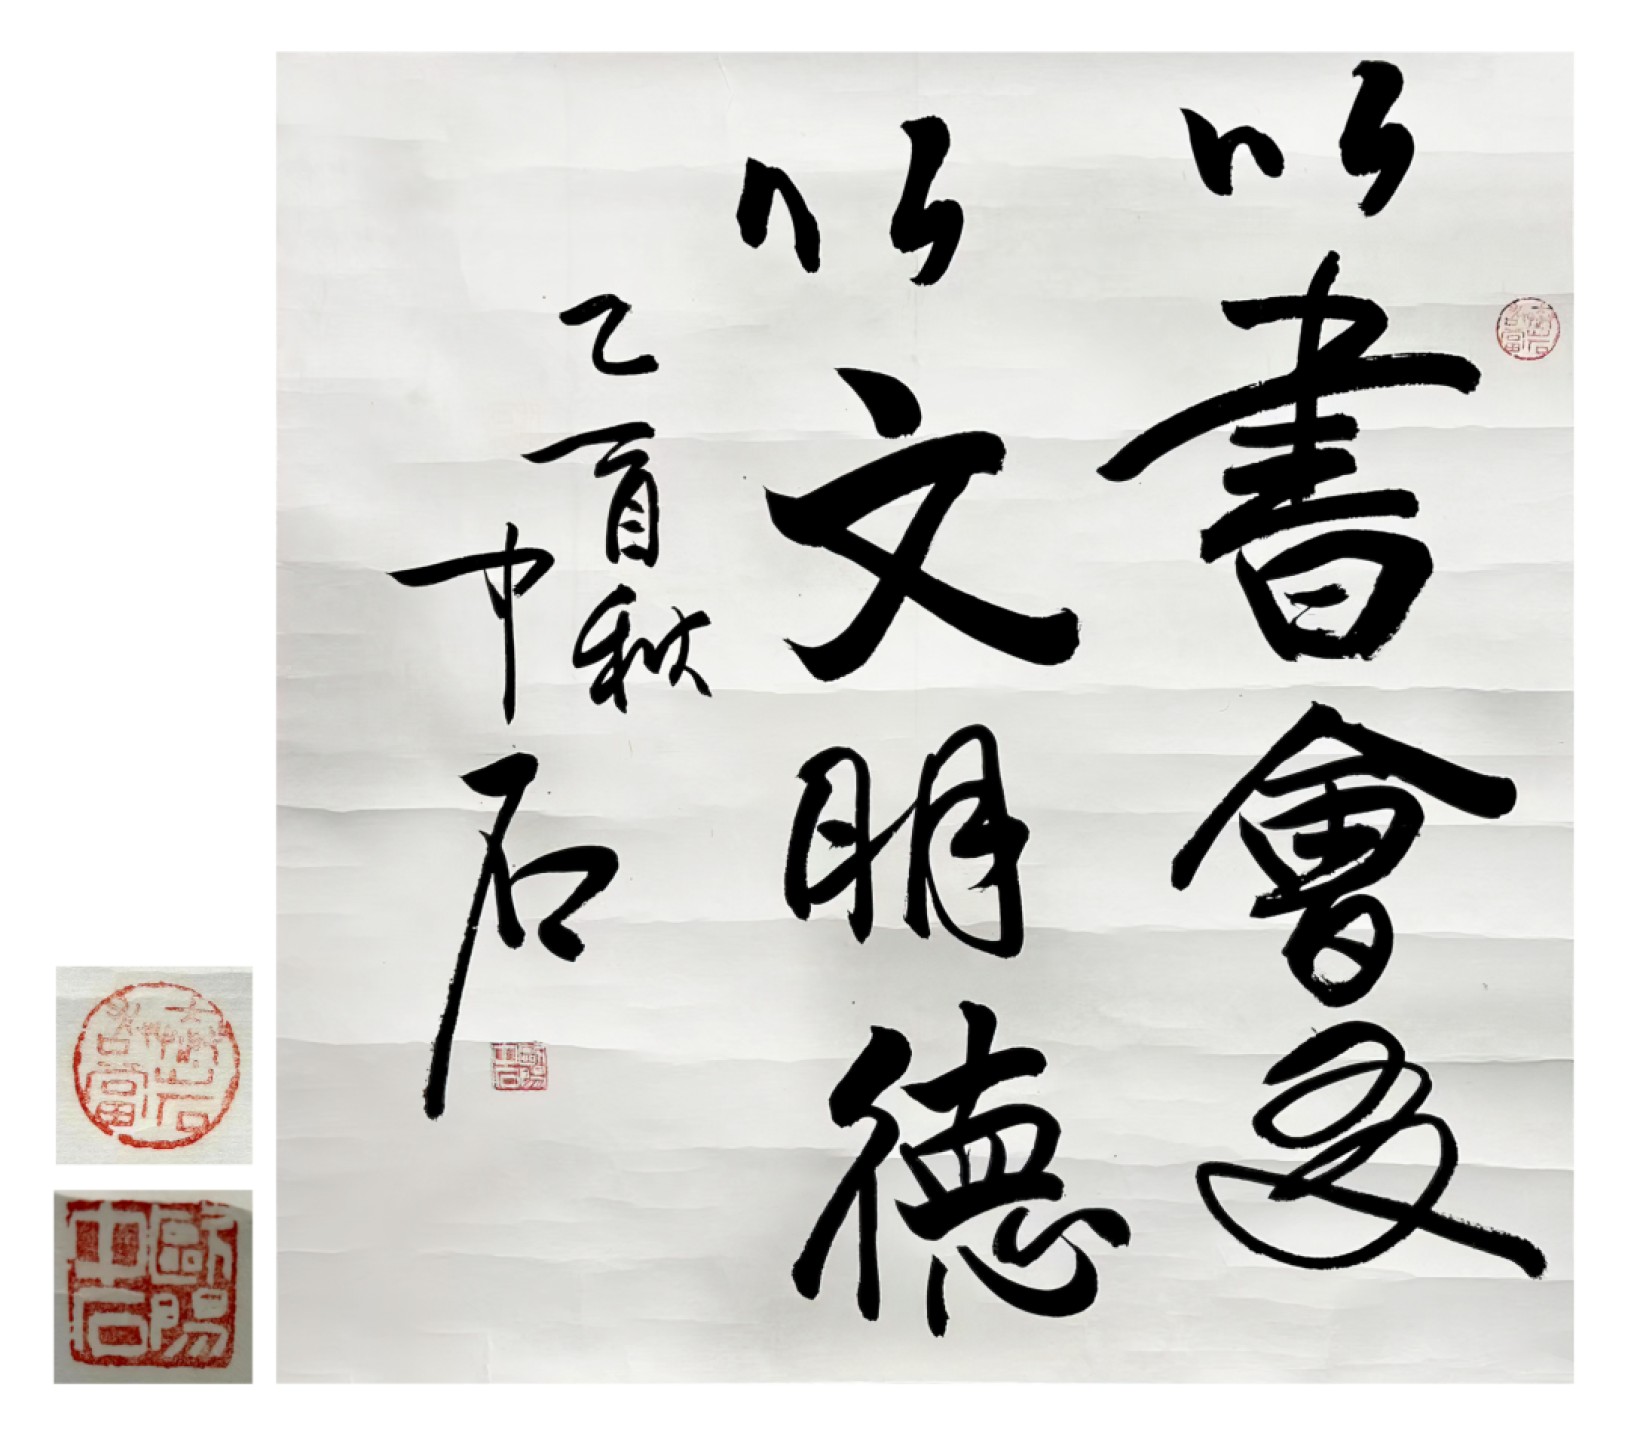 以書會友
以文明德
乙酉秋
中石
歐陽
中石
歐陽
中石